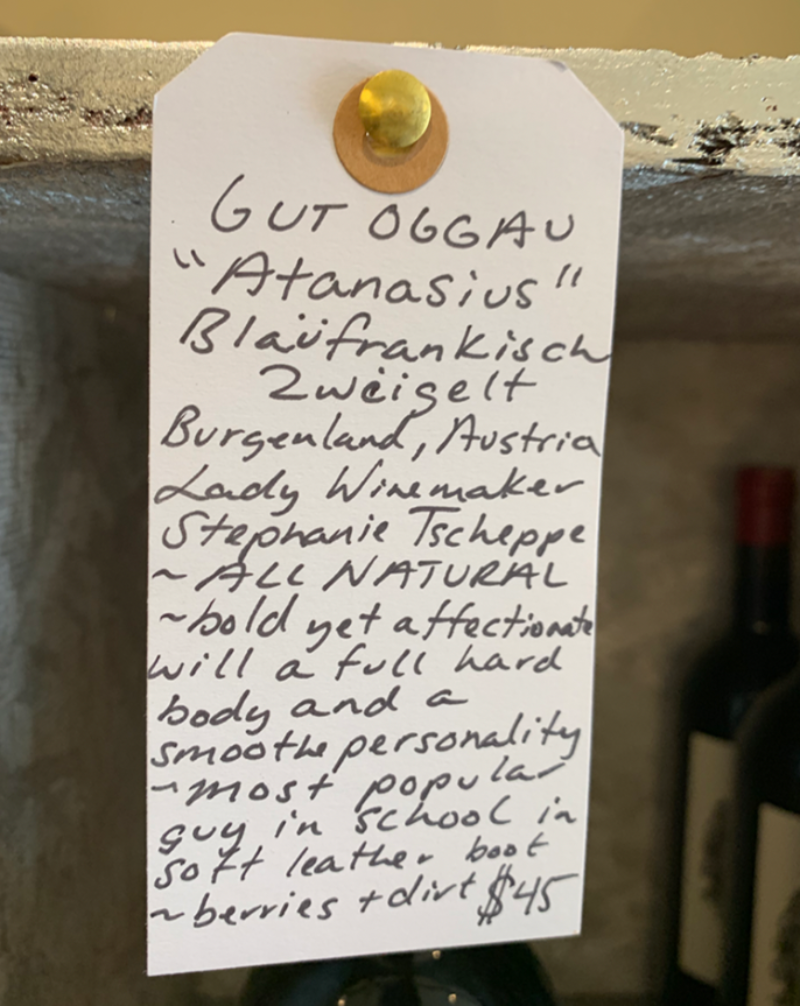 GUT OGGAU
"Atanasius"
Blaüfrankisch
Zweigelt
Burgenland, Austria
Lady Winemaker
Stephanie Tscheppe
~ ALL NATURAL
~bold yet affectionate
will a full hard
body and a
smoothe personality
~most popular
guy in school in
soft leather boot
~berries + dirt $45